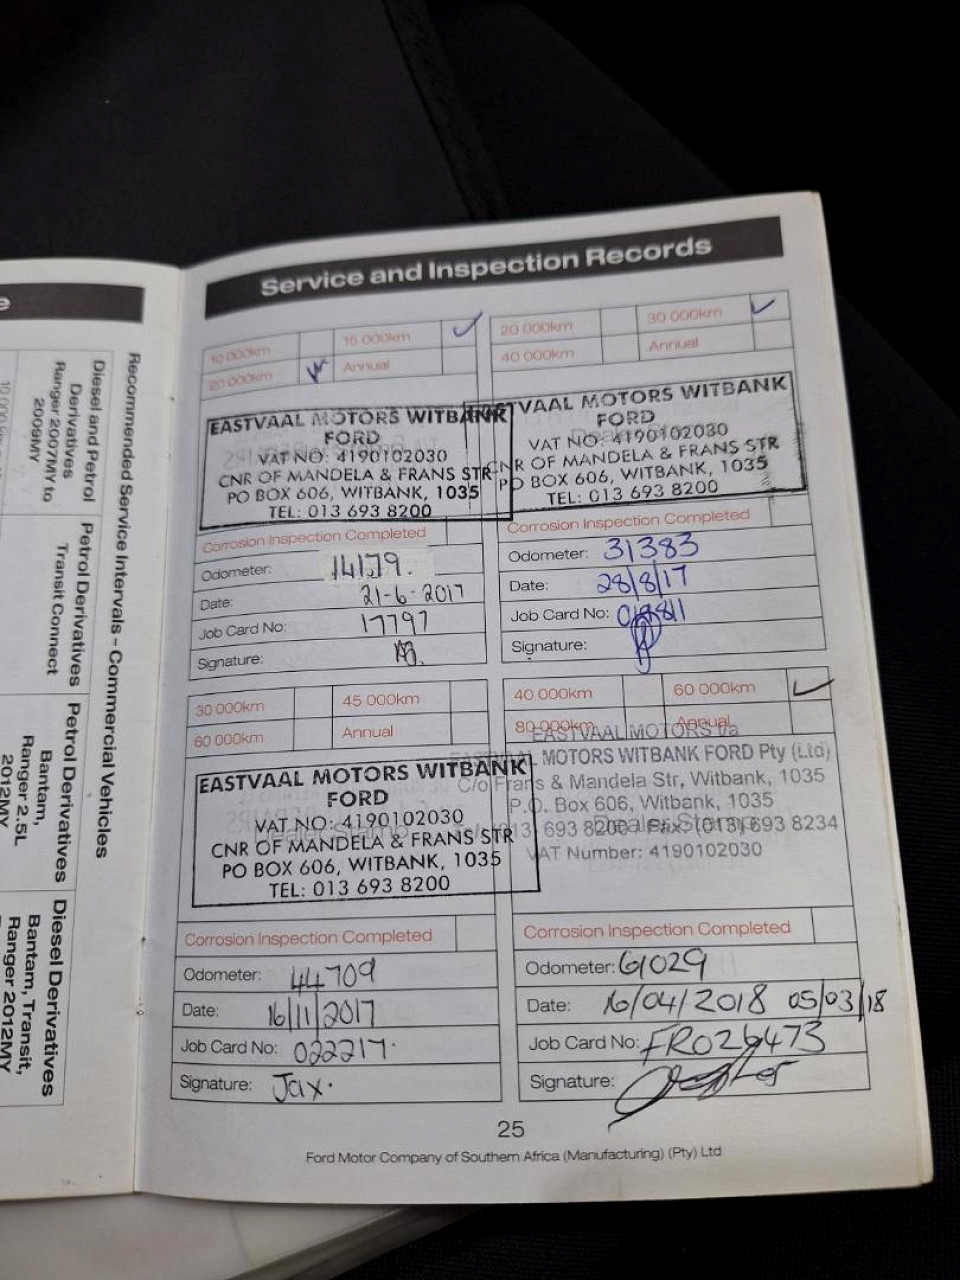 Service and Inspection Records
10 000km
15 000km
20 000km
Annual
EASTVAAL MOTORS WITBANK
FORD
VAT NO: 4190102030
CNR OF MANDELA & FRANS STR
PO BOX 606, WITBANK, 1035
TEL: 013 693 8200
Corrosion Inspection Completed
Odometer: 14179.
Date: 21-6-2017
Job Card No: 17797
Signature:
20 000km
30 000km
40 000km
Annual
TVAAL MOTORS WITBANK
FORD
VAT NO: 4190102030
CNR OF MANDELA & FRANS STR
PO BOX 606, WITBANK, 1035
TEL: 013 693 8200
Corrosion Inspection Completed
Odometer: 31383
Date: 28/8/17
Job Card No:
Signature:
30 000km
45 000km
60 000km
Annual
EASTVAAL MOTORS WITBANK
FORD
VAT NO: 4190102030
Dealer Stamp
CNR OF MANDELA & FRANS STR
PO BOX 606, WITBANK, 1035
TEL: 013 693 8200
Corrosion Inspection Completed
Odometer: 44709
Date: 16/11/2017
Job Card No: 022217.
Signature: Jax.
40 000km
60 000km
80 000km
Annual
EASTVAAL MOTORS t/a
EASTVAAL MOTORS WITBANK FORD Pty (Ltd)
C/o Frans & Mandela Str, Witbank, 1035
P.O. Box 606, Witbank, 1035
Dealer Stamp
Tel: (013) 693 8200 Fax: (013) 693 8234
VAT Number: 4190102030
Corrosion Inspection Completed
Odometer: 61029
Date: 16/04/2018 05/03/18
Job Card No: FRO26473
Signature:
25
Ford Motor Company of Southern Africa (Manufacturing) (Pty) Ltd
Recommended Service Intervals - Commercial Vehicles
Diesel and Petrol
Derivatives
Ranger 2007MY to
2009MY
Petrol Derivatives
Transit Connect
Petrol Derivatives
Bantam,
Ranger 2.5L
2012MY
Diesel Derivatives
Bantam, Transit,
Ranger 2012MY